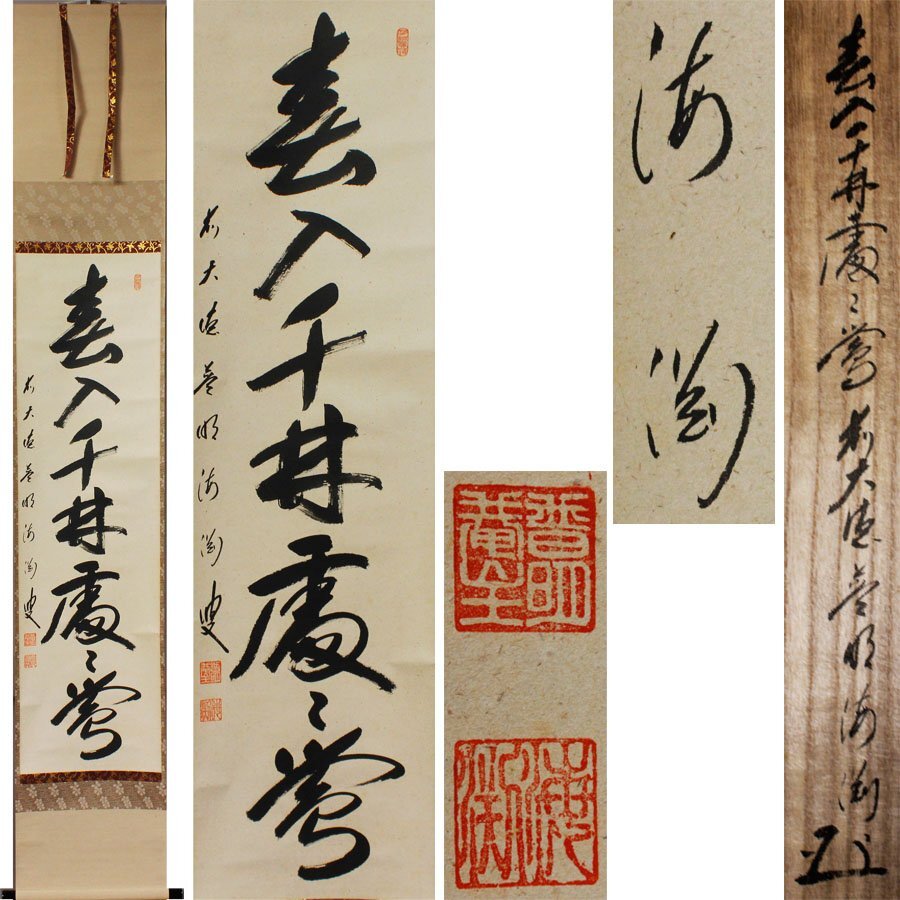 春入千林處々鶯
前大徳普明海淵叟
春入千林處々鶯
前大徳普明海淵叟
普明
菴主
海
淵
海淵
春入千林處々鶯 前大徳普明海淵